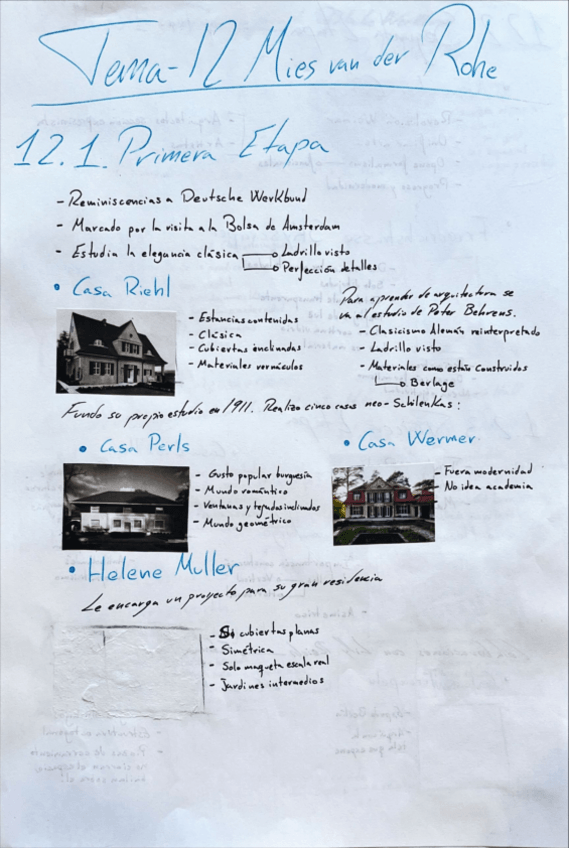 Tema-12 Mies van der Rohe
12.1. Primera Etapa
- Reminiscencias a Deutsche Werkbund
- Marcado por la visita a la Bolsa de Amsterdam
- Estudia la elegancia clásica
Ladrillo visto
Perfección detalles
• Casa Riehl
- Estancias contenidas
- Clásica
- Cubiertas inclinadas
- Materiales vernáculos
Para aprender de arquitectura se
va al estudio de Peter Behrens.
- Clasicismo Alemán reinterpretado
- Ladrillo visto
- Materiales como están construidos
Berlage
Fundo su propio estudio en 1911. Realizo cinco casas neo-Schilenkas:
• Casa Perls
- Gusto popular burguesía
- Mundo romántico
- Ventanas y tejados inclinados
- Mundo geométrico
• Casa Wermer
- Fuera modernidad
- No idea academia
• Helene Muller
Le encarga un proyecto para su gran residencia
- Si cubiertas planas
- Simétrica
- Solo maqueta escala real
- Jardines intermedios